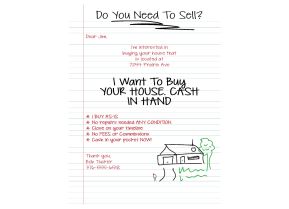 Do You Need To Sell?
Dear Joe,
I'm interested in
buying your house that
is located at
7244 Prairie Ave
I Want To Buy
YOUR HOUSE, CASH
IN HAND
* I BUY AS-IS
* No repairs needed ANY CONDITION
* Close on your timeline
* No FEES, or Commissions
* Cash in your pocket NOW!
Thank you,